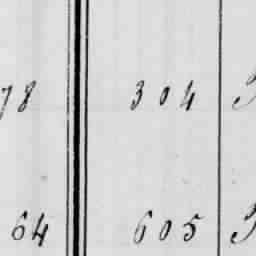 78 304
64 605